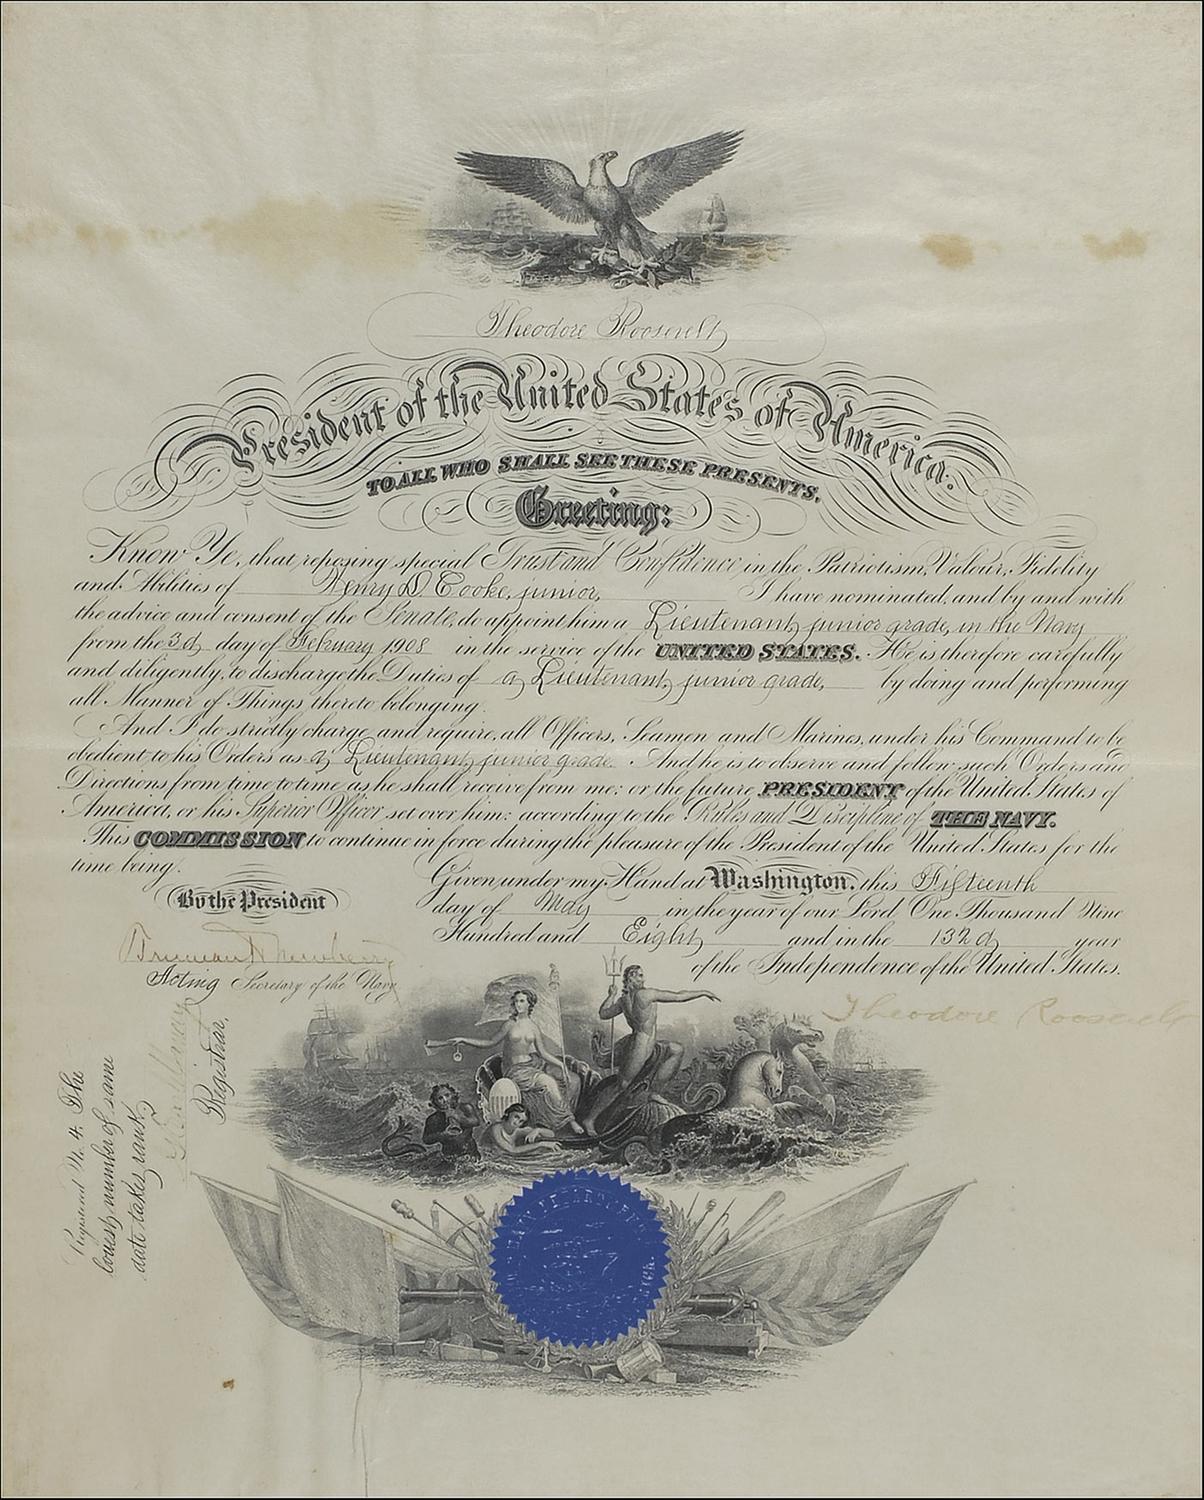 Theodore Roosevelt
President of the United States of America.
TO ALL WHO SHALL SEE THESE PRESENTS,
Greeting:
Know Ye, that reposing special Trust and Confidence in the Patriotism, Valour, Fidelity
and Abilities of Henry D. Cooke, junior, I have nominated, and by and with
the advice and consent of the Senate, do appoint him a Lieutenant, junior grade, in the Navy
from the 3d day of February 1908 in the service of the UNITED STATES. He is therefore carefully
and diligently, to discharge the Duties of a Lieutenant, junior grade, by doing and performing
all Manner of Things thereto belonging.
And I do strictly charge and require, all Officers, Seamen and Marines, under his Command to be
obedient to his Orders as a Lieutenant, junior grade. And he is to observe and follow such Orders and
Directions from time to time as he shall receive from me: or the future PRESIDENT of the United States of
America, or his Superior Officer set over him: according to the Rules and Discipline of THE NAVY.
This COMMISSION to continue in force during the pleasure of the President of the United States for the
time being.
Given under my Hand at Washington, this Fifteenth
day of May in the year of our Lord One Thousand Nine
Hundred and Eight and in the 132d year
of the Independence of the United States.
By the President
Truman H. Newberry
Acting Secretary of the Navy
Theodore Roosevelt
Registrar.
Registered No. 4. The
lowest number of same
date takes rank